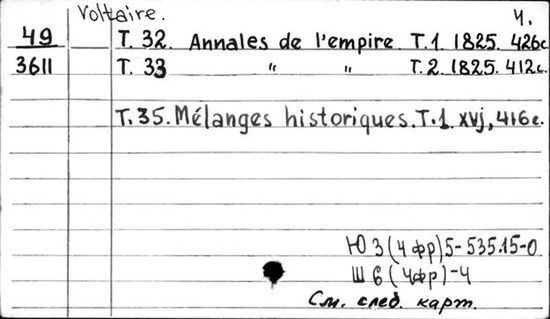 Voltaire. 4.
49 Т. 32. Annales de l'empire. Т.1. 1825. 426с.
3611 Т. 33 " " Т.2. 1825. 412с.
Т.35. Mélanges historiques. Т.1. xvj, 416с.
Ю 3(4 фр)5-535.15-0
Ш 6(4фр)-4
См. след. карт.